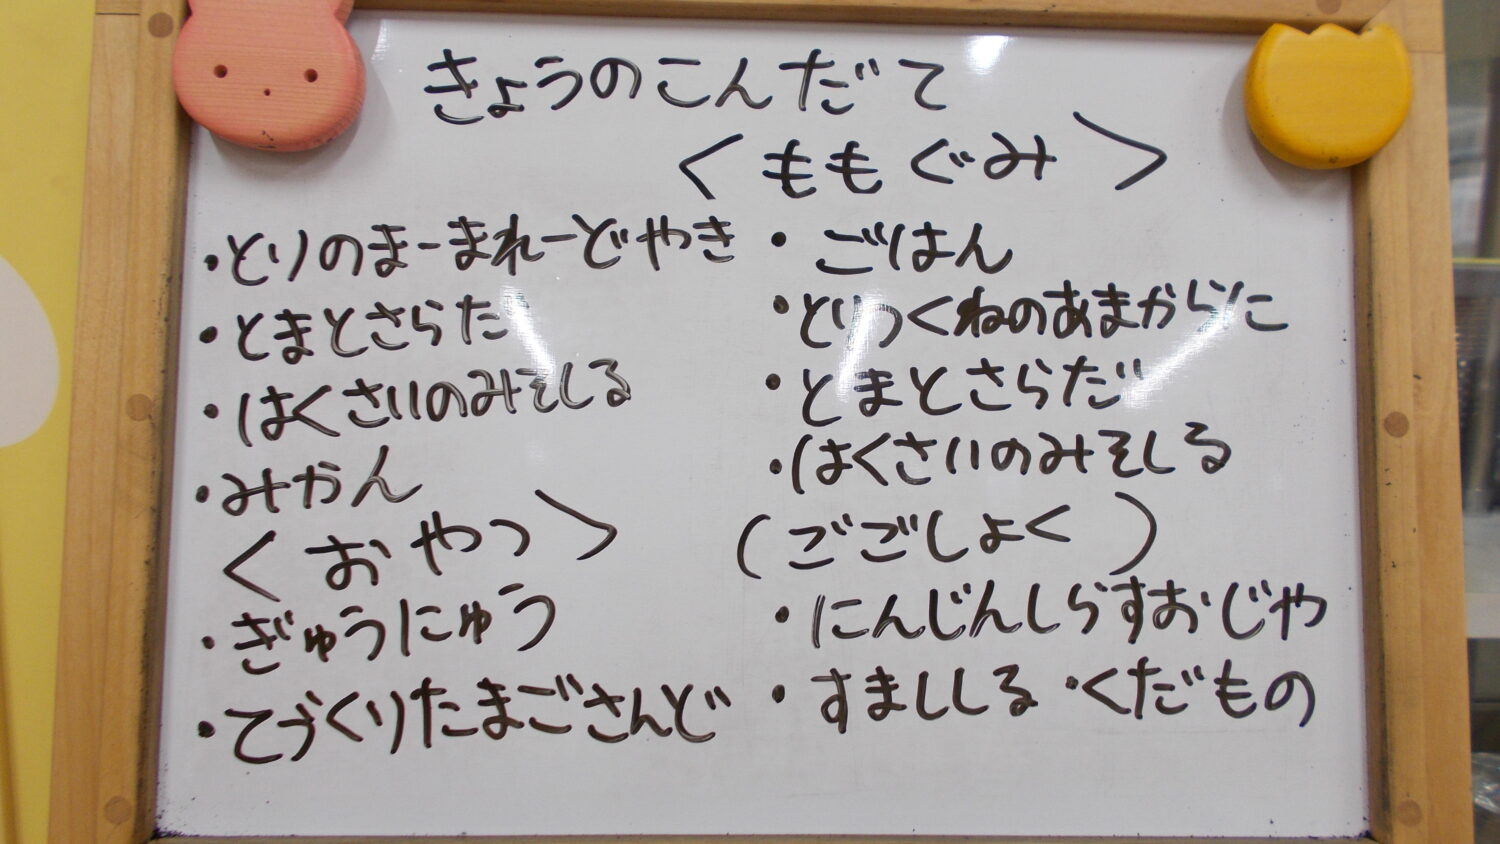 きょうのこんだて
・とりのまーまれーどやき
・とまとさらだ
・はくさいのみそしる
・みかん
<おやつ>
・ぎゅうにゅう
・てづくりたまごさんど
<ももぐみ>
・ごはん
・とりつくねのあまからに
・とまとさらだ
・はくさいのみそしる
(ごごしょく)
・にんじんしらすおじや
・すまししる・くだもの